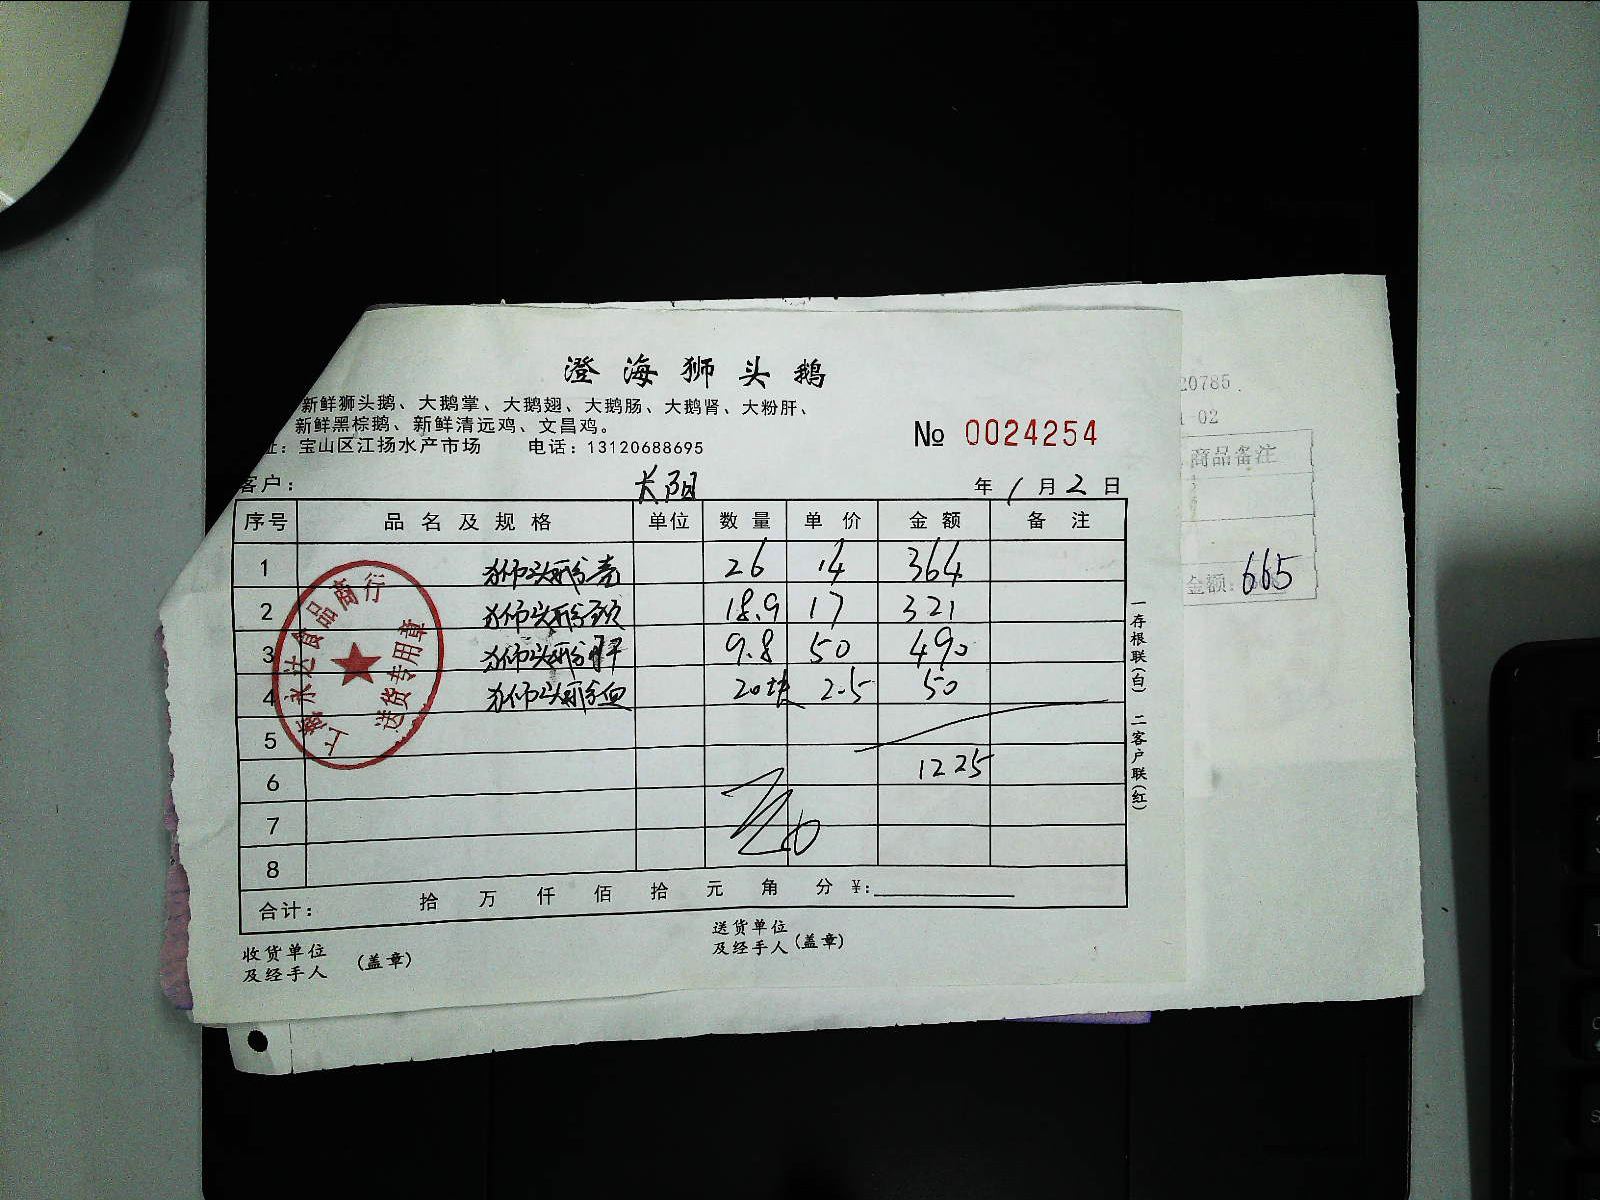 澄海狮头鹅
新鲜狮头鹅、大鹅掌、大鹅翅、大鹅肠、大鹅肾、大粉肝、
新鲜黑棕鹅、新鲜清远鸡、文昌鸡。
址：宝山区江扬水产市场 电话：13120688695
№ 0024254
客户： 长阳 年 1 月 2 日
序号 品名及规格 单位 数量 单价 金额 备注
1 狮头鹅壳 26 14 364
2 狮头鹅颈 18.9 17 321
3 狮头鹅肝 9.8 50 490
4 狮头鹅血 20块 2.5 50
5
6 1225
7
8
合计： 拾 万 仟 佰 拾 元 角 分 ¥:
收货单位
及经手人 (盖章)
送货单位
及经手人 (盖章)
一存根联(白) 二客户联(红)
上海永达食品商行
送货专用章
20785
1-02
商品备注
金额: 665